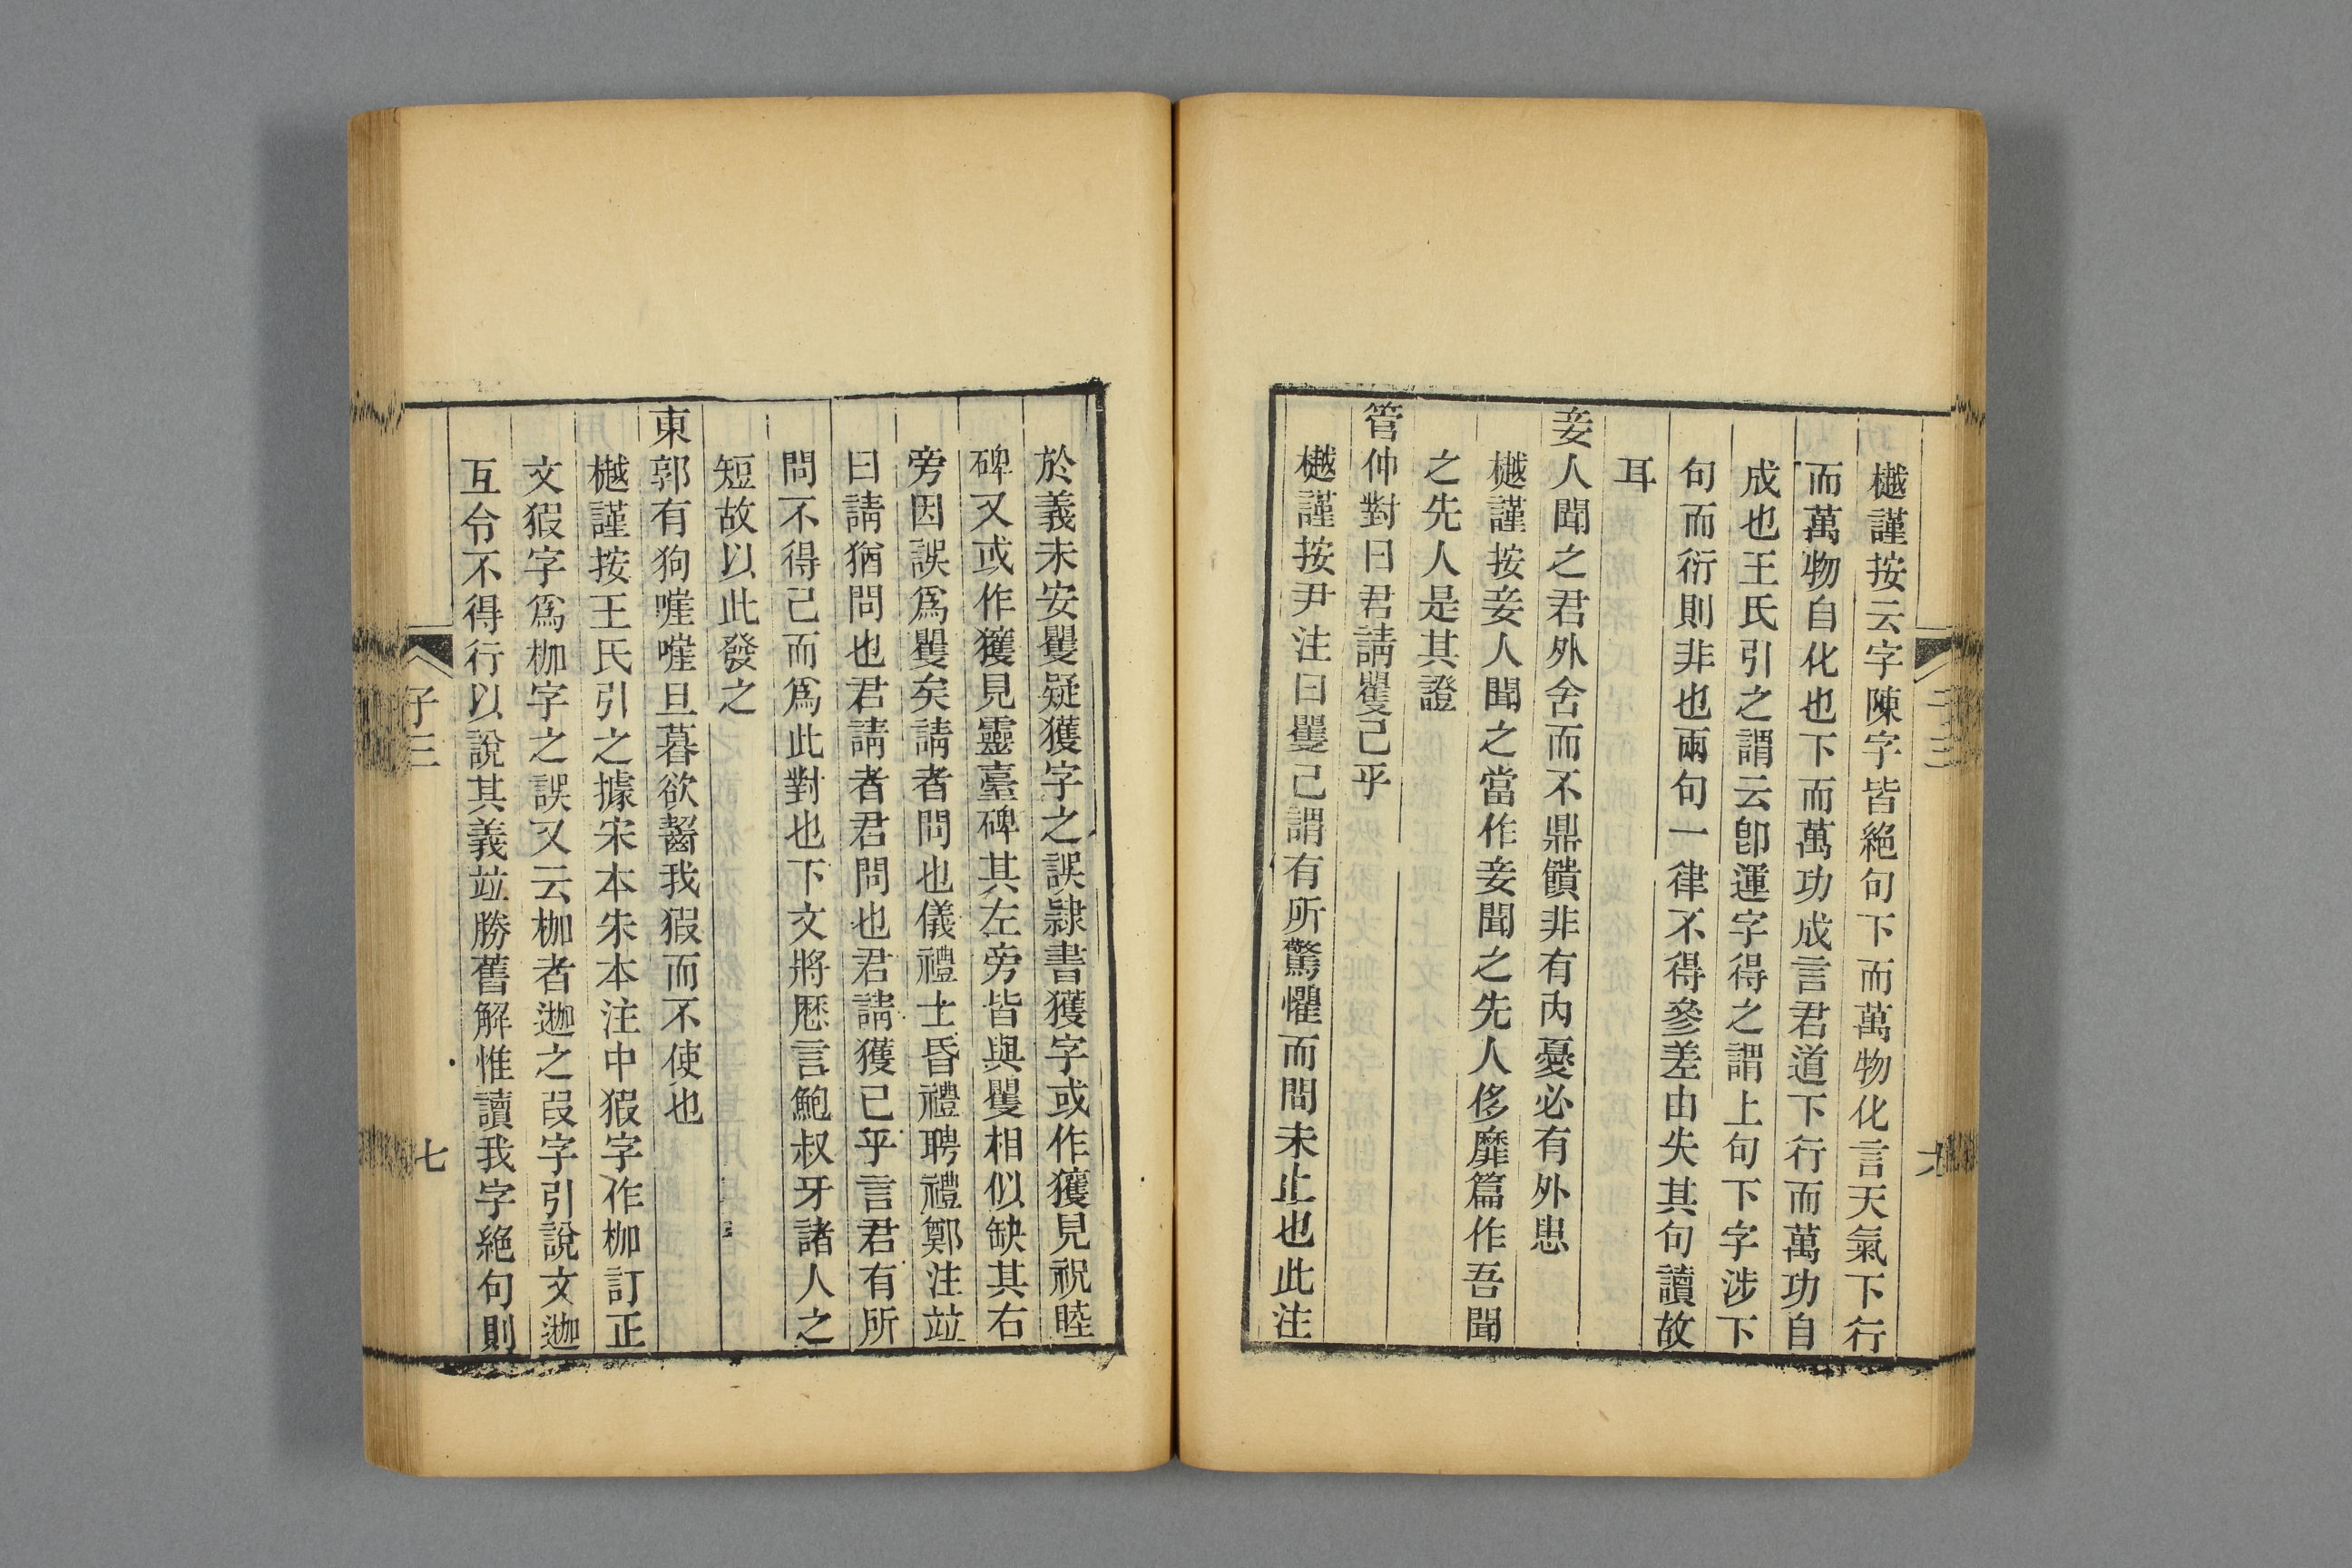 樾謹按云字陳字皆絕句下而萬物化言天氣下行
而萬物自化也下而萬功成言君道下行而萬功自
成也王氏引之謂云卽運字得之謂上句下字涉下
句而衍則非也兩句一律不得參差由失其句讀故
耳
妾人聞之君外舍而不鼎饋非有內憂必有外患
樾謹按妾人聞之當作妾聞之先人侈靡篇作吾聞
之先人是其證
管仲對曰君請矍已乎
樾謹按尹注曰矍已謂有所驚懼而問未止也此注
於義未安矍疑獲字之誤隸書獲字或作玃見祝睦
碑又或作玃見靈臺碑其左旁皆與矍相似缺其右
旁因誤爲矍矣請者問也儀禮士昏禮聘禮鄭注竝
曰請猶問也君請者君問也君請獲已乎言君有所
問不得已而爲此對也下文將歷言鮑叔牙諸人之
短故以此發之
東郭有狗嘊嘊旦暮欲齧我猳而不使也
樾謹按王氏引之據宋本朱本注中猳字作枷訂正
文猳字爲枷字之誤又云枷者迦之叚字引說文迦
互令不得行以說其義竝勝舊解惟讀我字絕句則
子三
七